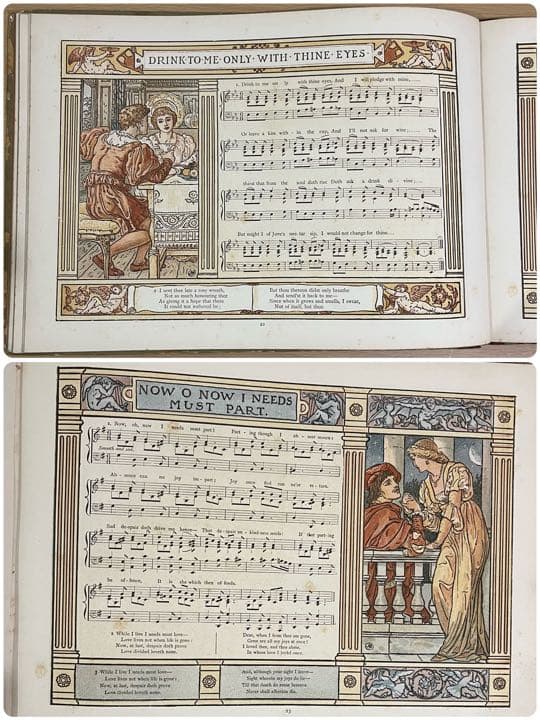 DRINK·TO·ME·ONLY·WITH·THINE·EYES·
1. Drink to me only with thine eyes, And I will pledge with mine,
Or leave a kiss with - in the cup, And I'll not ask for wine; The
thirst that from the soul doth rise Doth ask a drink di - vine;
But might I of Jove's nec-tar sip, I would not change for thine.
2. I sent thee late a rosy wreath,
Not so much honouring thee
As giving it a hope that there
It could not withered be;
But thou thereon didst only breathe
And send'st it back to me—
Since when it grows and smells, I swear,
Not of itself, but thee.
22
NOW O NOW I NEEDS
MUST PART.
1. Now, oh, now I needs must part! Part - ing though I ab - sent mourn:
Smooth and sad.
Ab - sence can no joy im - part; Joy once fled can ne'er re - turn.
Sad de-spair doth drive me hence— That de-spair un - kind-ness sends: If that part-ing
be of-fence, It is she which then of-fends.
2. While I live I needs must love—
Love lives not when life is gone:
Now, at last, despair doth prove
Love divided loveth none.
Dear, when I from thee am gone,
Gone are all my joys at once!
I loved thee, and thee alone,
In whose love I joyèd once.
3. While I live I needs must love—
Love lives not when life is gone;
Now, at last, despair doth prove
Love divided loveth none.
And, although your sight I leave—
Sight wherein my joys do lie—
Till that death do sense bereave
Never shall affection die.
23